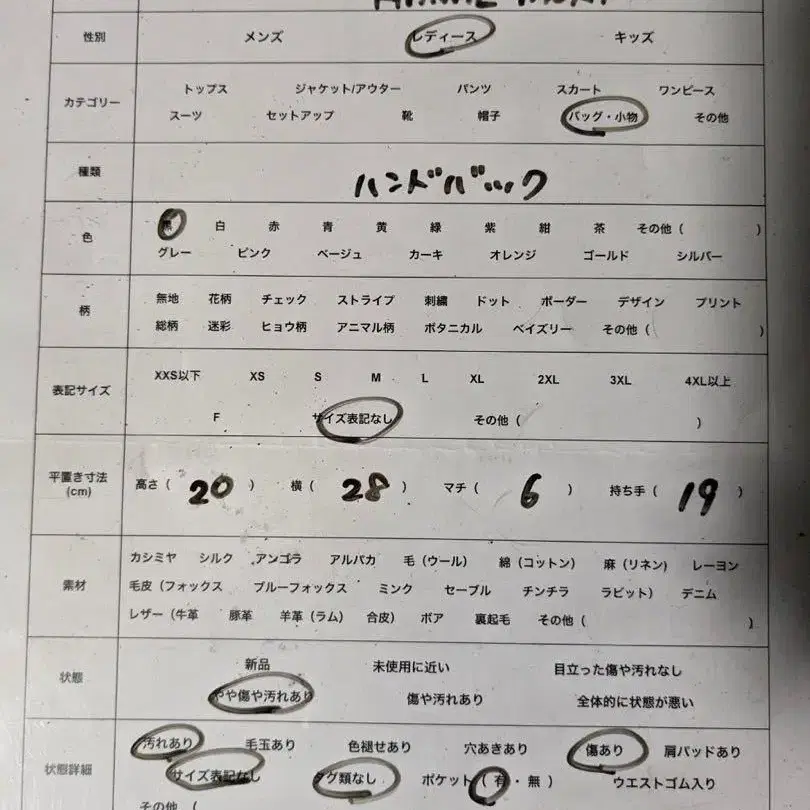 性別 メンズ レディース キッズ
カテゴリー トップス ジャケット/アウター パンツ スカート ワンピース
スーツ セットアップ 靴 帽子 バッグ・小物 その他
種類 ハンドバック
色 黒 白 赤 青 黄 緑 紫 紺 茶 その他 ( )
グレー ピンク ベージュ カーキ オレンジ ゴールド シルバー
柄 無地 花柄 チェック ストライプ 刺繍 ドット ボーダー デザイン プリント
総柄 迷彩 ヒョウ柄 アニマル柄 ボタニカル ペイズリー その他 ( )
表記サイズ XXS以下 XS S M L XL 2XL 3XL 4XL以上
F サイズ表記なし その他 ( )
平置き寸法 (cm) 高さ ( 20 ) 横 ( 28 ) マチ ( 6 ) 持ち手 ( 19 )
素材 カシミヤ シルク アンゴラ アルパカ 毛 (ウール) 綿 (コットン) 麻 (リネン) レーヨン
毛皮 (フォックス ブルーフォックス ミンク セーブル チンチラ ラビット) デニム
レザー (牛革 豚革 羊革 (ラム) 合皮) ボア 裏起毛 その他 ( )
状態 新品 未使用に近い 目立った傷や汚れなし
やや傷や汚れあり 傷や汚れあり 全体的に状態が悪い
状態詳細 汚れあり 毛玉あり 色褪せあり 穴あきあり 傷あり 肩パッドあり
サイズ表記なし タグ類なし ポケット ( 有 ・ 無 ) ウエストゴム入り
その他 (